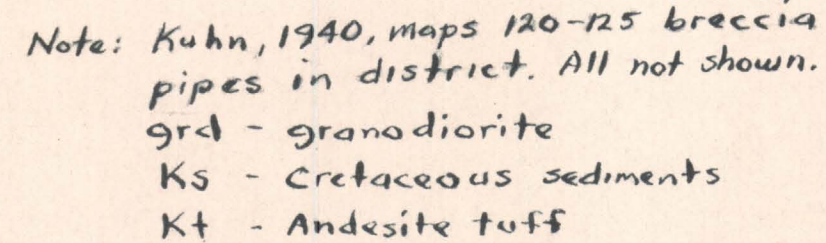 Note: Kuhn, 1940, maps 120-125 breccia
pipes in district. All not shown.
grd - granodiorite
Ks - Cretaceous sediments
Kt - Andesite tuff